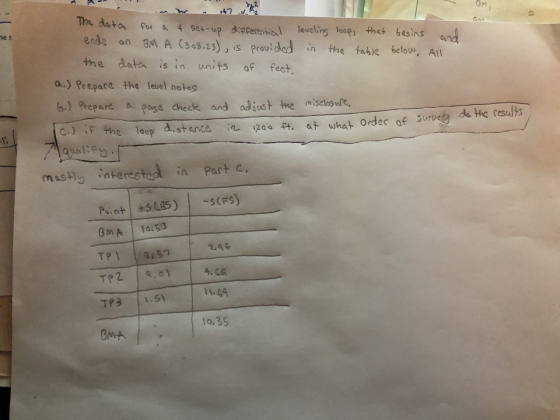 The data for a 4 set-up differential leveling loops that begins and
ends on BM A (303.23), is provided in the table below. All
the data is in units of feet.
a.) Prepare the level notes
b.) Prepare a page check and adjust the misclosure.
c.) if the loop distance in 1200 ft. at what Order of survey do the results
qualify.
mostly interested in part c.
Point +S(BS) -S(FS)
BMA 10.53
TP1
TP2
TP3
BMA 10.35